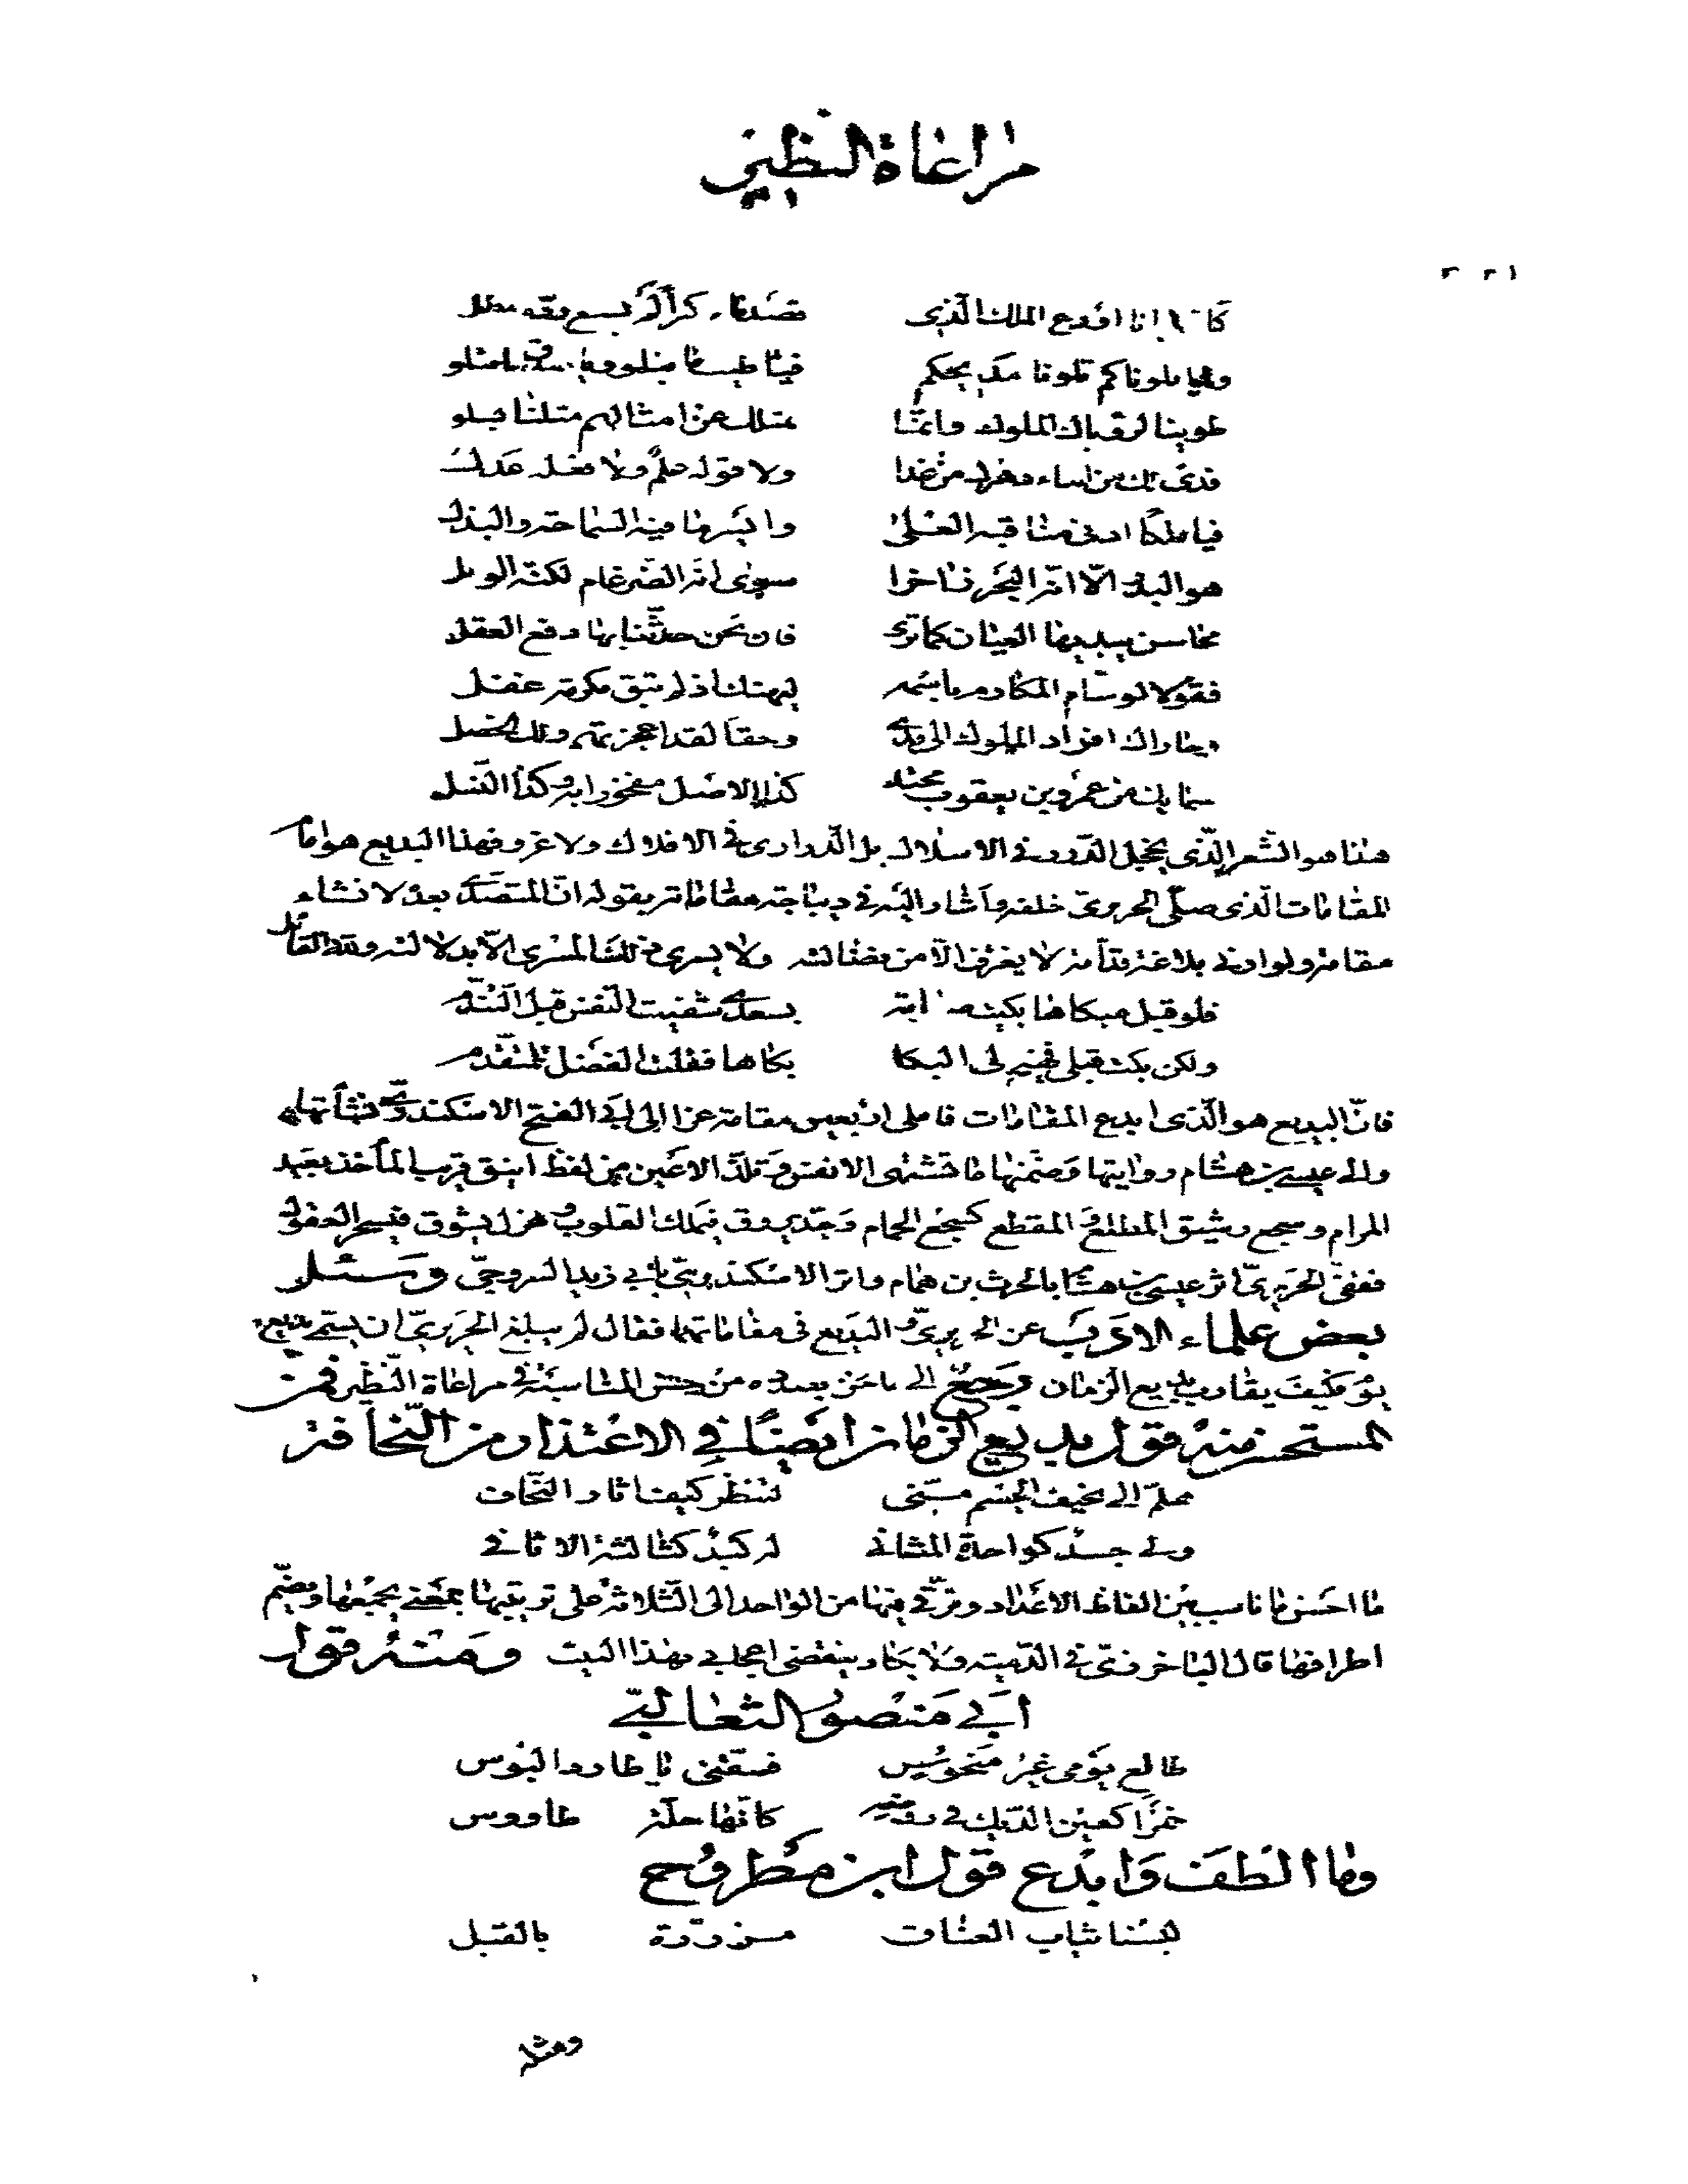 مراعاة النظير
كأنا افدع الملك الذى قصدناه كذا لم يسع
ولما بلوناكم تلونا مديحكم فيا طيب ما نبلو ويا صدق ما نتلو
طوينا للقياك الملوك وانما بمثلك عن امثالهم مثلنا يسلو
ولا قوله علم ولا فعله عدل
فيا ملكا ادنى مناقبه العلى وايسر ما فيه السماحة والبذل
هو البدر الّا انّه البحر زاخرا سوى انّه الضرغام لكنّه الوبل
محاسن يبديها العيان كما ترى فان نحن حدّثنا بها دفع العقل
فقولا لوسّام المكارم باسمه ليهنك اذ لم تبق مكرمة غفل
وجاراك افراد الملوك الى مدى وحقا لقد اعجزتهم ولك الخصل
سما بك من عمرو بن يعقوب محتد كذا الاصل مفخورا به وكذا النسل
هذا هو الشعر الّذى يخجل الدّرر فى الاسلاك بل الدّرارى فى الافلاك ولا غرو فهذا البديع هو امام
المقامات الّذى صلّى الحريرىّ خلفه واشار اليه فى ديباجة مقاماته بقوله انّ المتصدّى بعده لانشاء
مقامة ولو اوتى بلاغة قدامة لا يغرف الّا من فضالته ولا يسرى ذلك المسرى الّا بدلالته ولله القائل
فلو قبل مبكاها بكيت صبابة بسعدى شفيت النفس قبل التندّم
ولكن بكت قبلى فهيج لى البكا بكاها فقلت الفضل للمتقدّم
فانّ البديع هو الّذى ابدع المقامات فاملى اربعين مقامة عزا الى ابى الفتح الاسكندرى نشأتها
والى عيسى بن هشام روايتها وضمّنها ما تشتهى الانفس وتلذّ الاعين من لفظ انيق قريب المأخذ بعيد
المرام وسجع رشيق المطلع والمقطع كسجع الحمام وجدّ يروق فيملك القلوب وهزل يشوق فيسحر العقول
فقفى الحريرىّ اثر عيسى بن هشام بالحرث بن همام واثر الاسكندرىّ بابى زيد السروجىّ وسئل
بعض علماء الادب عن الحريرىّ والبديع فى مقاماتهما فقال لم يبلغ الحريرىّ ان يسمّى بديع
يوم فكيف يقارب بديع الزمان رجع الى ما نحن بصدده من حسن المناسبة فى مراعاة النّظير فمن
المستحسن منه قول بديع الزمان ايضًا فى الاعتذار من النّحافة
هلمّ الى نحيف الجسم منّى لتنظر كيف اثار النّحاف
ولى جسد كواحدة المثانى له كبد كثالثة الاثافى
ما احسن ما ناسب بين الفاظ الاعداد وترقّى فيها من الواحد الى الثّلاثة على ترتيبها بمعنى يجمعها ويضمّ
اطرافها قال الباخرزىّ فى الدّمية ولا يكاد ينقضى اعجابى بهذا البيت ومنه قول
ابى منصور الثعالبىّ
طالع يومى غير منحوس فسقّنى يا طارد البوس
خمرًا كعين الدّيك فى روضة كانّها حلّة طاووس
وما الطف وابدع قول ابن مطروح
لبسنا ثياب العناق مزرّرة بالقبل
ومثله